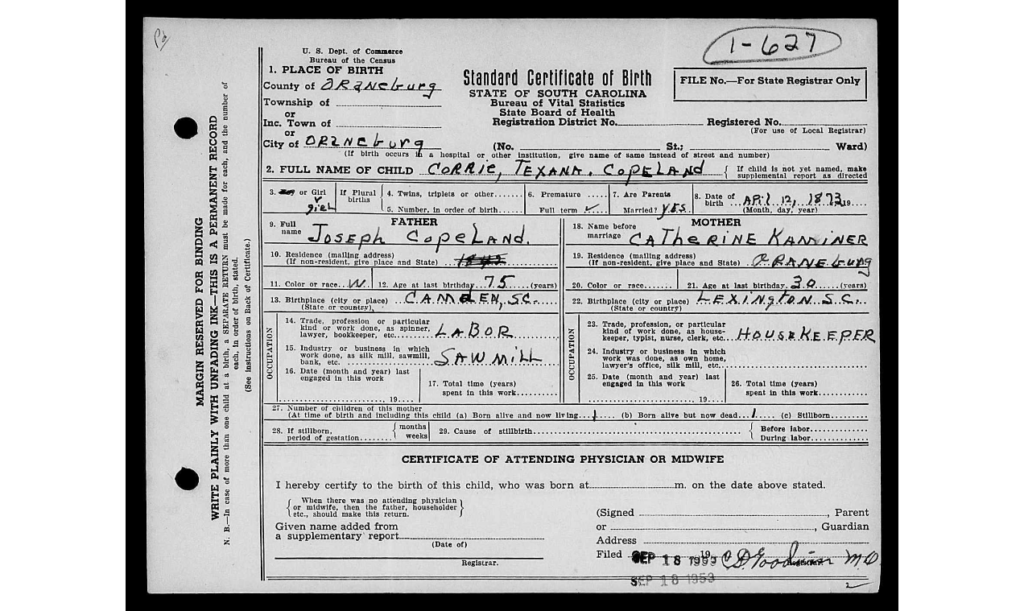 1-627
U. S. Dept. of Commerce
Bureau of the Census
1. PLACE OF BIRTH
County of ORANeburg
Township of
or
Inc. Town of
or
City of ORANeburg
Standard Certificate of Birth
STATE OF SOUTH CAROLINA
Bureau of Vital Statistics
State Board of Health
Registration District No.
FILE No.—For State Registrar Only
Registered No.
(For use of Local Registrar)
(No. St.; Ward)
(If birth occurs in a hospital or other institution, give name of same instead of street and number)
2. FULL NAME OF CHILD CORRIE, TEXANA. COPELAND { If child is not yet named, make supplemental report as directed
3. or Girl girl
If Plural births
4. Twins, triplets or other
5. Number, in order of birth
6. Premature
Full term ✓
7. Are Parents Married? YES
8. Date of birth APril 12, 1873 19
(Month, day, year)
FATHER
9. Full name JOSEPH COPELAND.
10. Residence (mailing address)
(If non-resident, give place and State)
11. Color or race W 12. Age at last birthday 75 (years)
13. Birthplace (city or place) CAMDEN, SC.
(State or country)
OCCUPATION
14. Trade, profession or particular kind or work done, as spinner, lawyer, bookkeeper, etc. LABOR
15. Industry or business in which work done, as silk mill, sawmill, bank, etc. SAWMILL
16. Date (month and year) last engaged in this work
19
17. Total time (years) spent in this work
MOTHER
18. Name before marriage CATHERINE KAMINER
19. Residence (mailing address)
(If non-resident, give place and State) ORANEburg
20. Color or race 21. Age at last birthday 30 (years)
22. Birthplace (city or place) LEXINGTON S.C.
(State or country)
OCCUPATION
23. Trade, profession, or particular kind of work done, as housekeeper, typist, nurse, clerk, etc. HOUSEKEEPER
24. Industry or business in which work was done, as own home, lawyer's office, silk mill, etc.
25. Date (month and year) last engaged in this work
19
26. Total time (years) spent in this work
27. Number of children of this mother
(At time of birth and including this child (a) Born alive and now living 1 (b) Born alive but now dead 1 (c) Stillborn
28. If stillborn, period of gestation { months weeks
29. Cause of stillbirth
{ Before labor
During labor
CERTIFICATE OF ATTENDING PHYSICIAN OR MIDWIFE
I hereby certify to the birth of this child, who was born at m. on the date above stated.
{ When there was no attending physician or midwife, then the father, householder etc., should make this return. }
Given name added from
a supplementary report
(Date of)
Registrar.
(Signed , Parent
or , Guardian
Address
Filed SEP 18 1953 M.D.
SEP 18 1953
MARGIN RESERVED FOR BINDING
WRITE PLAINLY WITH UNFADING INK—THIS IS A PERMANENT RECORD
N. B.—In case of more than one child at a birth, a SEPARATE RETURN must be made for each, and the number of
each, in order of birth, stated.
(See instructions on Back of Certificate.)